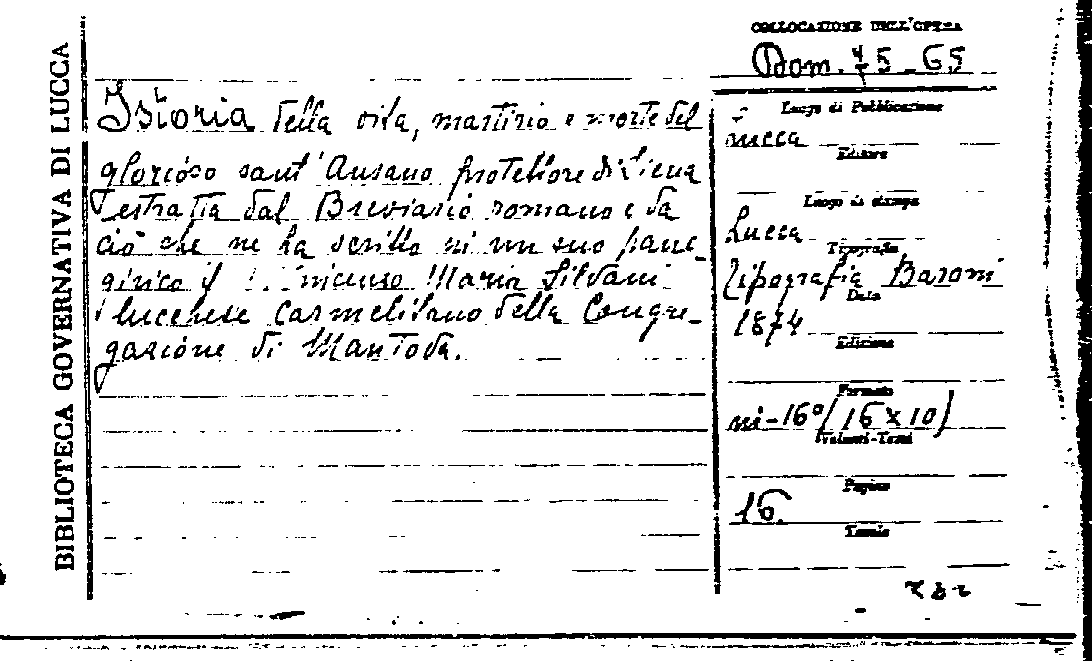 BIBLIOTECA GOVERNATIVA DI LUCCA
Istoria della vita, martirio e morte del
glorioso sant'Ansano protettore di Siena
estratta dal Breviario romano e da
ciò che ne ha scritto in un suo pane-
girico il Maria Silvani
lucchese Carmelitano della Congre-
gazione di Mantova.
COLLOCAZIONE DELL'OPERA
Bom. 75-65
Luogo di Pubblicazione
Lucca
Editore
Luogo di stampa
Lucca
Tipografia
Tipografia Baroni
Data
1874
Edizione
Formato
in-16° (16 x 10)
Volumi-Tomi
Pagine
16.